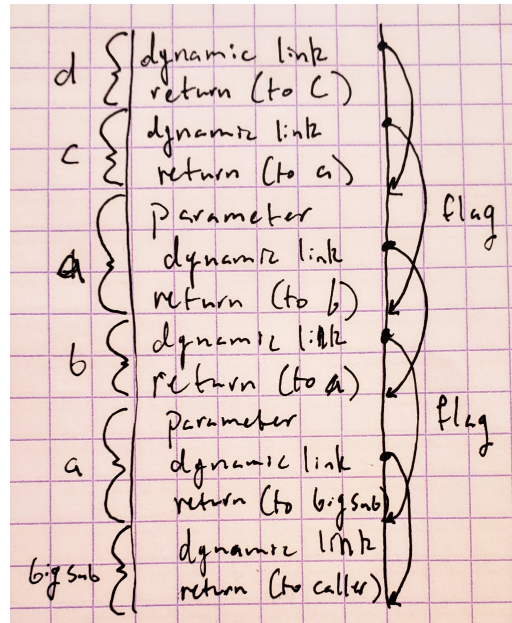 d dynamic link
return (to C)
c dynamic link
return (to a)
parameter flag
a dynamic link
return (to b)
b dynamic link
return (to a)
parameter flag
a dynamic link
return (to bigsub)
bigsub dynamic link
return (to caller)